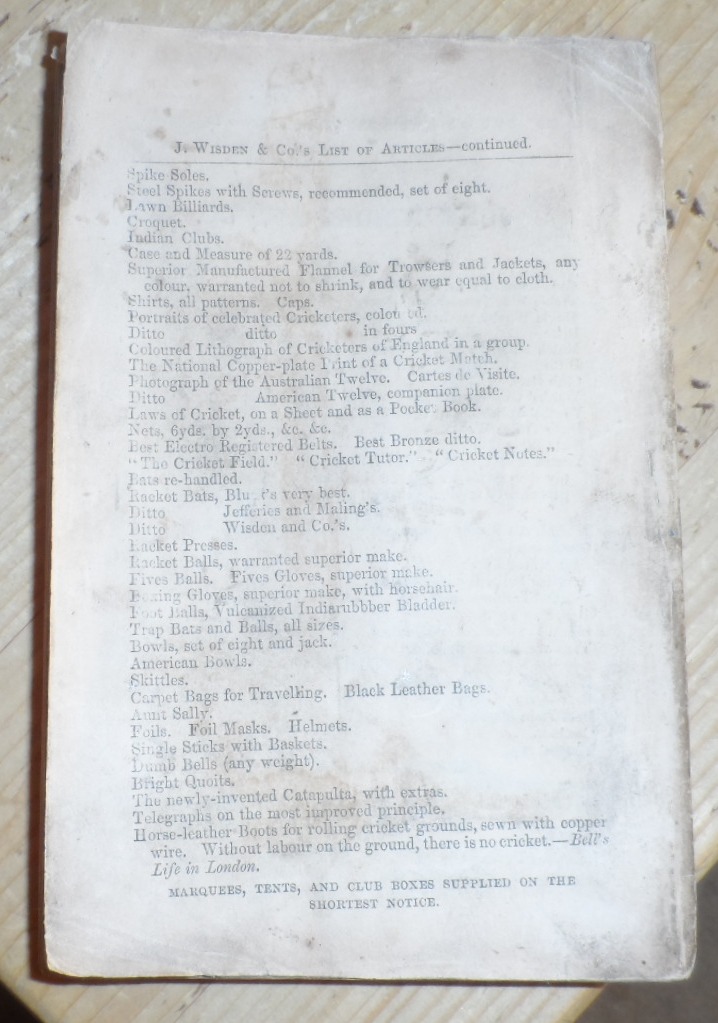 J. WISDEN & CO.'S LIST OF ARTICLES—continued.
Spike Soles.
Steel Spikes with Screws, recommended, set of eight.
Lawn Billiards.
Croquet.
Indian Clubs.
Case and Measure of 22 yards.
Superior Manufactured Flannel for Trowsers and Jackets, any
colour, warranted not to shrink, and to wear equal to cloth.
Shirts, all patterns. Caps.
Portraits of celebrated Cricketers, colou ed.
Ditto ditto in fours
Coloured Lithograph of Cricketers of England in a group.
The National Copper-plate Print of a Cricket Match.
Photograph of the Australian Twelve. Cartes de Visite.
Ditto American Twelve, companion plate.
Laws of Cricket, on a Sheet and as a Pocket Book.
Nets, 6yds. by 2yds., &c. &c.
Best Electro Registered Belts. Best Bronze ditto.
"The Cricket Field." "Cricket Tutor." "Cricket Notes."
Bats re-handled.
Racket Bats, very best.
Ditto Jefferies and Maling's.
Ditto Wisden and Co.'s.
Racket Presses.
Racket Balls, warranted superior make.
Fives Balls. Fives Gloves, superior make.
Boxing Gloves, superior make, with horsehair.
Foot Balls, Vulcanized Indiarubbber Bladder.
Trap Bats and Balls, all sizes.
Bowls, set of eight and jack.
American Bowls.
Skittles.
Carpet Bags for Travelling. Black Leather Bags.
Aunt Sally.
Foils. Foil Masks. Helmets.
Single Sticks with Baskets.
Dumb Bells (any weight).
Bright Quoits.
The newly-invented Catapulta, with extras.
Telegraphs on the most improved principle.
Horse-leather Boots for rolling cricket grounds, sewn with copper
wire. Without labour on the ground, there is no cricket.—Bell's
Life in London.
MARQUEES, TENTS, AND CLUB BOXES SUPPLIED ON THE
SHORTEST NOTICE.